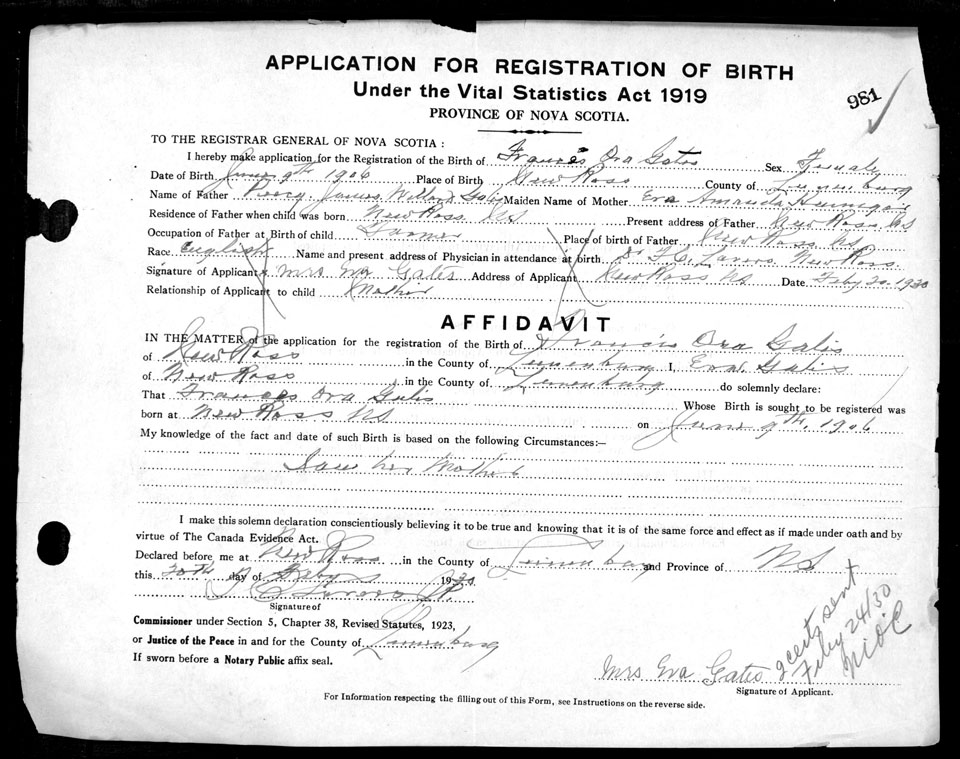 APPLICATION FOR REGISTRATION OF BIRTH
Under the Vital Statistics Act 1919
PROVINCE OF NOVA SCOTIA.
981
TO THE REGISTRAR GENERAL OF NOVA SCOTIA :
I hereby make application for the Registration of the Birth of Frances Ora Gates Sex Female
Date of Birth June 9th 1906 Place of Birth New Ross County of Lunenburg
Name of Father Percy James Gates Maiden Name of Mother Eva Amanda
Residence of Father when child was born New Ross NS Present address of Father New Ross NS
Occupation of Father at Birth of child Farmer Place of birth of Father New Ross NS
Race English Name and present address of Physician in attendance at birth Dr Lavers New Ross
Signature of Applicant Mrs Eva Gates Address of Applicant New Ross NS Date Feby 20. 1930
Relationship of Applicant to child Mother
AFFIDAVIT
IN THE MATTER of the application for the registration of the Birth of Francis Ora Gates
of New Ross in the County of Lunenburg I, Eva Gates
of New Ross in the County of Lunenburg do solemnly declare:
That Frances Ora Gates Whose Birth is sought to be registered was
born at New Ross NS on June 9th, 1906
My knowledge of the fact and date of such Birth is based on the following Circumstances:—
her Mother
I make this solemn declaration conscientiously believing it to be true and knowing that it is of the same force and effect as if made under oath and by
virtue of The Canada Evidence Act.
Declared before me at New Ross in the County of Lunenburg and Province of NS
this 20th day of Feby 1930
Lavers JP
Signature of
Commissioner under Section 5, Chapter 38, Revised Statutes, 1923,
or Justice of the Peace in and for the County of Lunenburg
If sworn before a Notary Public affix seal.
2 certs sent
Feby 24/30
Mrs Eva Gates
Signature of Applicant.
For Information respecting the filling out of this Form, see Instructions on the reverse side.